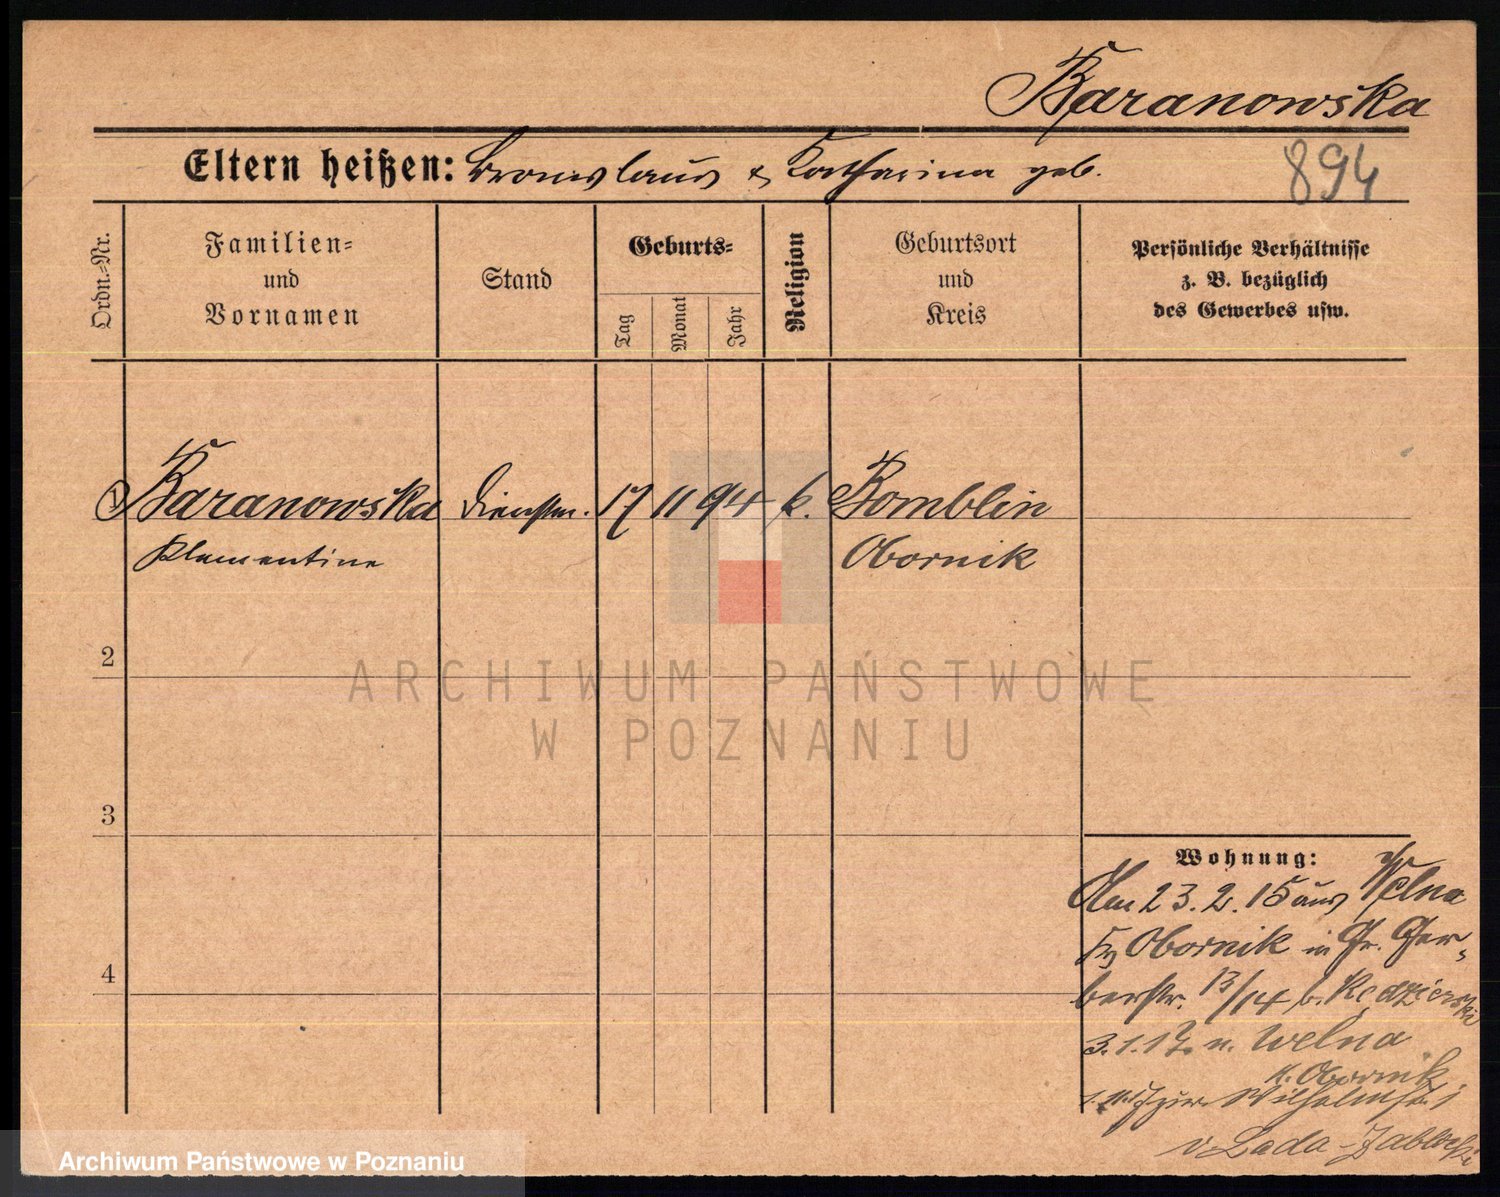 Baranowska
Eltern heißen: Bronislaus & Katharina geb.
894
Ordn.-Nr.
Familien-
und
Vornamen
Stand
Geburts-
Tag
Monat
Jahr
Religion
Geburtsort
und
Kreis
Persönliche Verhältnisse
z. B. bezüglich
des Gewerbes usw.
1 Baranowska Dienstm. 17 11 94 k. Bomblin
Klementine Obornik
2
3
4
Wohnung:
Am 23.2.15 aus Welna
Kr. Obornik in Gr. Ger-
berstr. 13/14 b. Kedzierski
3.1.17. n. Welna
K. Obornik
zur Wilhelmstr. 1
v Lada-Zablocki
ARCHIWUM PAŃSTWOWE
W POZNANIU
Archiwum Państwowe w Poznaniu